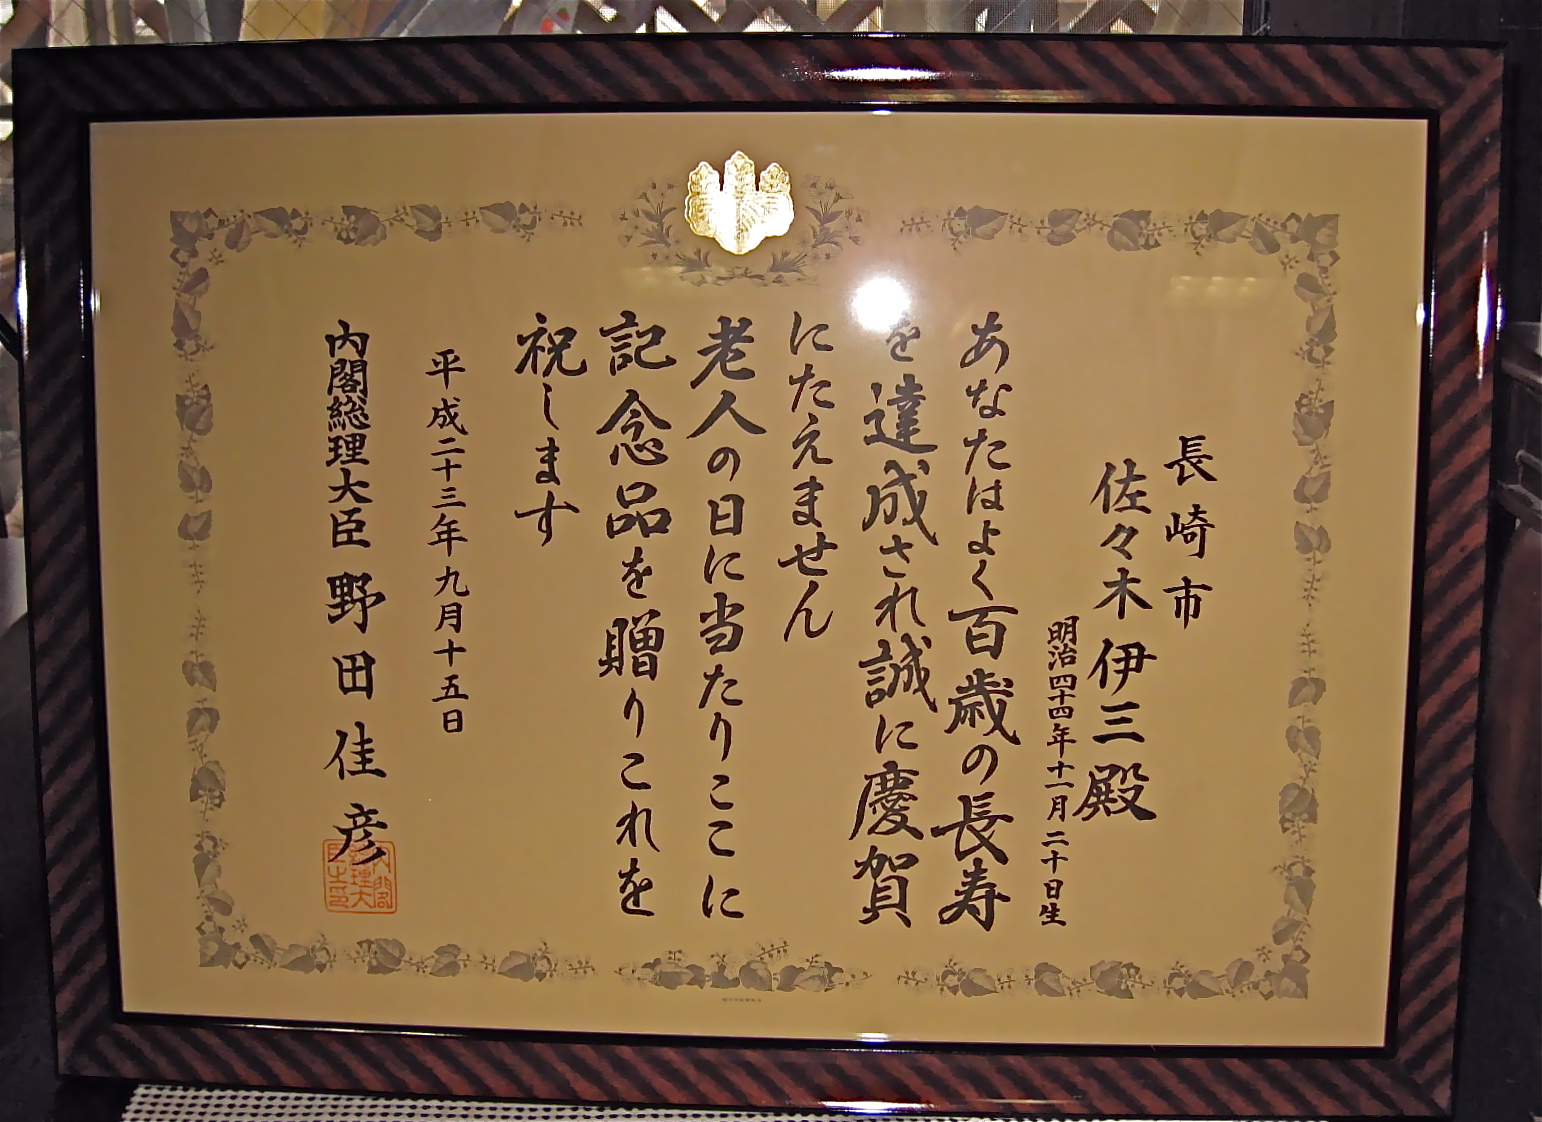 長崎市
佐々木伊三殿
明治四十四年十一月二十日生
あなたはよく百歳の長寿
を達成され誠に慶賀
にたえません
老人の日に当たりここに
記念品を贈りこれを
祝します
平成二十三年九月十五日
内閣総理大臣 野田佳彦